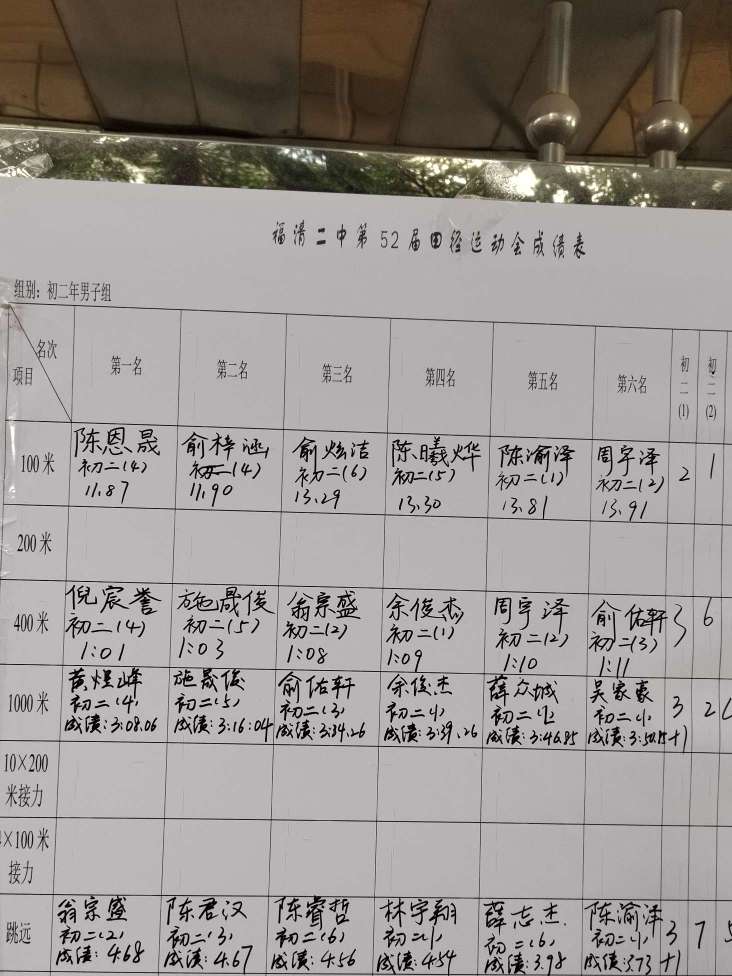 福清二中第52届田径运动会成绩表
组别：初二年男子组
名次
项目
第一名
第二名
第三名
第四名
第五名
第六名
初二(1)
初二(2)
100米
陈恩晟
初二(4)
11.87
俞梓涵
初二(4)
11.90
俞炫洁
初二(6)
13.29
陈曦烨
初二(5)
13.30
陈渝泽
初二(1)
13.81
周宇泽
初二(2)
13.91
2
1
200米
400米
倪宸誉
初二(4)
1:01
施晟俊
初二(5)
1:03
翁宗盛
初二(2)
1:08
余俊杰
初二(1)
1:09
周宇泽
初二(2)
1:10
俞佑轩
初二(3)
1:11
3
6
1000米
黄煜峰
初二(4)
成绩:3:08.06
施晟俊
初二(5)
成绩:3:16:04
俞佑轩
初二(3)
成绩:3:34.26
余俊杰
初二(1)
成绩:3:39.26
薛众城
初二(2
成绩:3:46.85
吴家豪
初二(1)
成绩:3:50.15
3
+1
2
10×200
米接力
4×100米
接力
跳远
翁宗盛
初二(2)
成绩:4.68
陈君汉
初二(3)
成绩:4.67
陈睿哲
初二(6)
成绩:4.56
林宇翔
初二(1)
成绩:4.54
薛志杰
初二(6)
成绩:3.98
陈渝泽
初二(1)
成绩:3.73
3
+1
7